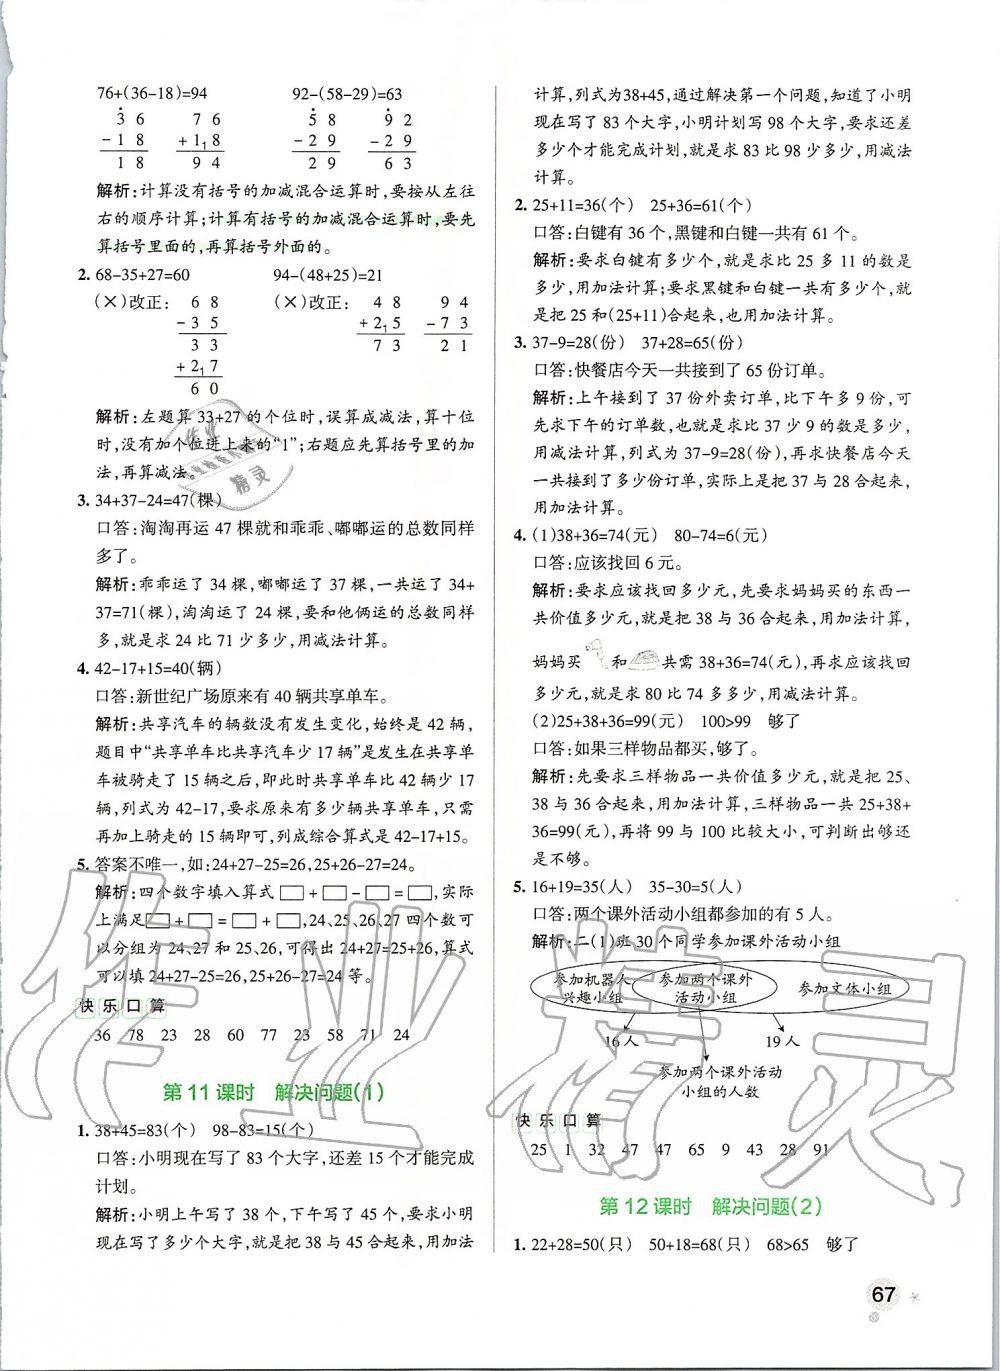 76+(36-18)=94 92-(58-29)=63
3 6 7 6 5 8 9 2
- 1 8 + 1 1 8 - 2 9 - 2 9
1 8 9 4 2 9 6 3
解析:计算没有括号的加减混合运算时,要按从左往
右的顺序计算;计算有括号的加减混合运算时,要先
算括号里面的,再算括号外面的。
2. 68-35+27=60 94-(48+25)=21
(×)改正: 6 8 (×)改正: 4 8 9 4
- 3 5 + 2 1 5 - 7 3
3 3 7 3 2 1
+ 2 1 7
6 0
解析:左题算 33+27 的个位时,误算成减法,算十位
时,没有加个位进上来的“1”;右题应先算括号里的加
法,再算减法。
3. 34+37-24=47(棵)
口答:淘淘再运 47 棵就和乖乖、嘟嘟运的总数同样
多了。
解析:乖乖运了 34 棵,嘟嘟运了 37 棵,一共运了 34+
37=71(棵),淘淘运了 24 棵,要和他俩运的总数同样
多,就是求 24 比 71 少多少,用减法计算。
4. 42-17+15=40(辆)
口答:新世纪广场原来有 40 辆共享单车。
解析:共享汽车的辆数没有发生变化,始终是 42 辆,
题目中“共享单车比共享汽车少 17 辆”是发生在共享单
车被骑走了 15 辆之后,即此时共享单车比 42 辆少 17
辆,列式为 42-17,要求原来有多少辆共享单车,只需
再加上骑走的 15 辆即可,列成综合算式是 42-17+15。
5. 答案不唯一,如:24+27-25=26,25+26-27=24。
解析:四个数字填入算式□+□-□=□,实际
上满足□+□=□+□,24、25、26、27 四个数可
以分组为 24、27 和 25、26,可得出 24+27=25+26,算式
可以填 24+27-25=26,25+26-27=24 等。
快乐口算
36 78 23 28 60 77 23 58 71 24
第 11 课时 解决问题(1)
1. 38+45=83(个) 98-83=15(个)
口答:小明现在写了 83 个大字,还差 15 个才能完成
计划。
解析:小明上午写了 38 个,下午写了 45 个,要求小明
现在写了多少个大字,就是把 38 与 45 合起来,用加法
计算,列式为38+45,通过解决第一个问题,知道了小明
现在写了 83 个大字,小明计划写 98 个大字,要求还差
多少个才能完成计划,就是求 83 比 98 少多少,用减法
计算。
2. 25+11=36(个) 25+36=61(个)
口答:白键有 36 个,黑键和白键一共有 61 个。
解析:要求白键有多少个,就是求比 25 多 11 的数是
多少,用加法计算;要求黑键和白键一共有多少个,就
是把 25 和(25+11)合起来,也用加法计算。
3. 37-9=28(份) 37+28=65(份)
口答:快餐店今天一共接到了 65 份订单。
解析:上午接到了 37 份外卖订单,比下午多 9 份,可
先求下午的订单数,也就是求比 37 少 9 的数是多少,
用减法计算,列式为 37-9=28(份),再求快餐店今天
一共接到了多少份订单,实际上是把 37 与 28 合起来,
用加法计算。
4. (1)38+36=74(元) 80-74=6(元)
口答:应该找回 6 元。
解析:要求应该找回多少元,先要求妈妈买的东西一
共价值多少元,就是把 38 与 36 合起来,用加法计算,
妈妈买 和 共需 38+36=74(元),再求应该找回
多少元,就是求 80 比 74 多多少,用减法计算。
(2)25+38+36=99(元) 100>99 够了
口答:如果三样物品都买,够了。
解析:先要求三样物品一共价值多少元,就是把 25、
38 与 36 合起来,用加法计算,三样物品一共 25+38+
36=99(元),再将 99 与 100 比较大小,可判断出够还
是不够。
5. 16+19=35(人) 35-30=5(人)
口答:两个课外活动小组都参加的有 5 人。
解析:二(1)班 30 个同学参加课外活动小组
参加机器人 参加两个课外 参加文体小组
兴趣小组 活动小组
16 人 19 人
参加两个课外活动
小组的人数
快乐口算
25 1 32 47 47 65 9 43 28 91
第 12 课时 解决问题(2)
1. 22+28=50(只) 50+18=68(只) 68>65 够了
67
作业精灵